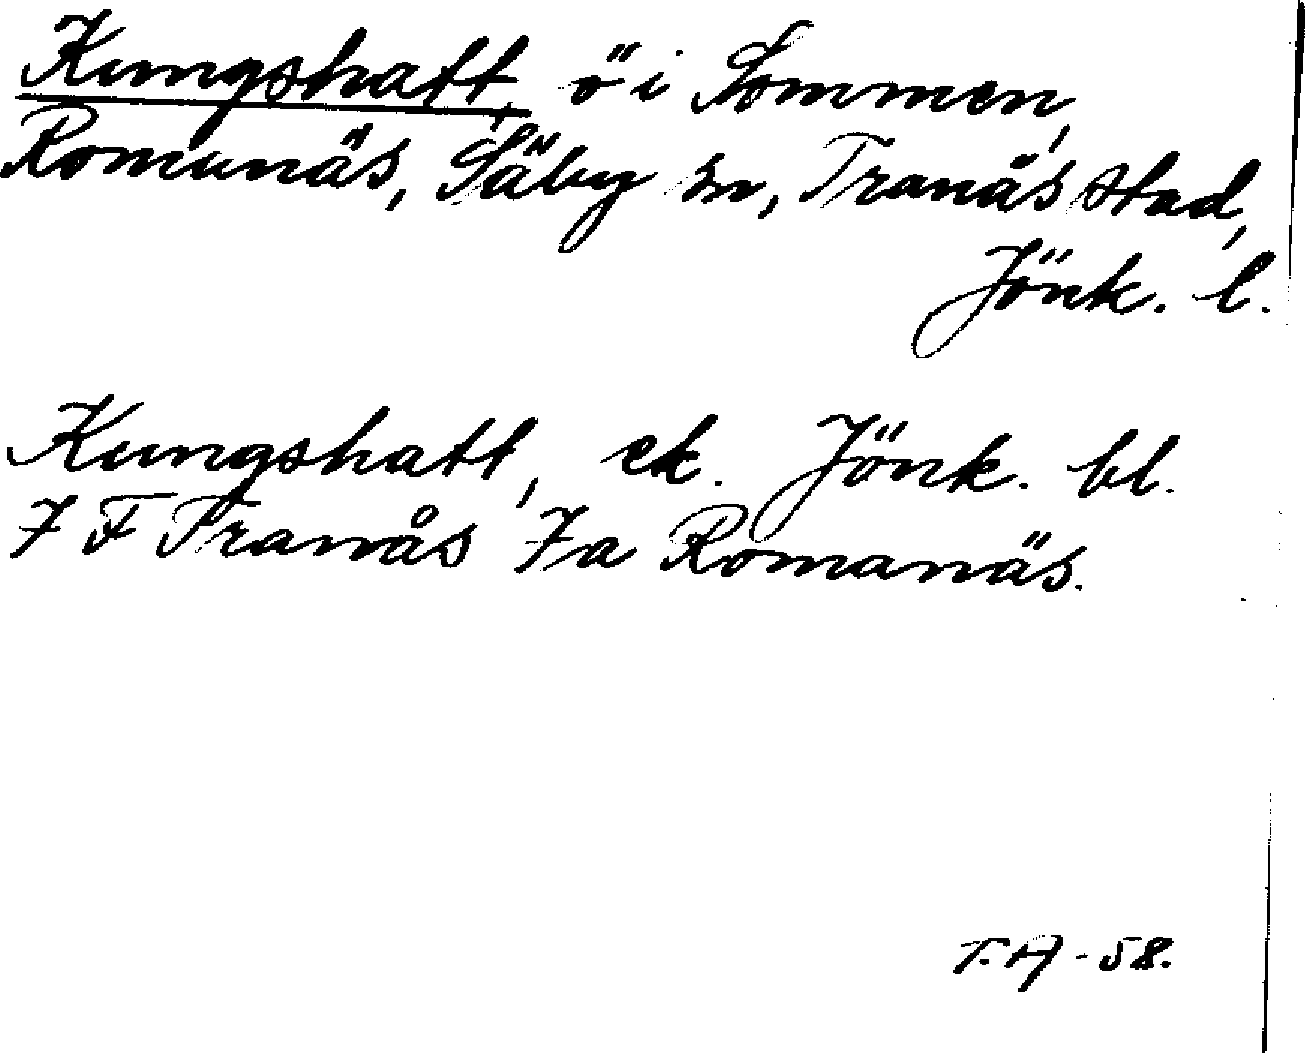 Kungshatt, ö i Sommen,
Romanäs, Säby sn, Tranås stad,
Jönk. l.
Kungshatt, ek. Jönk. bl.
7 F Tranås 7a Romanäs.
T.A -58.